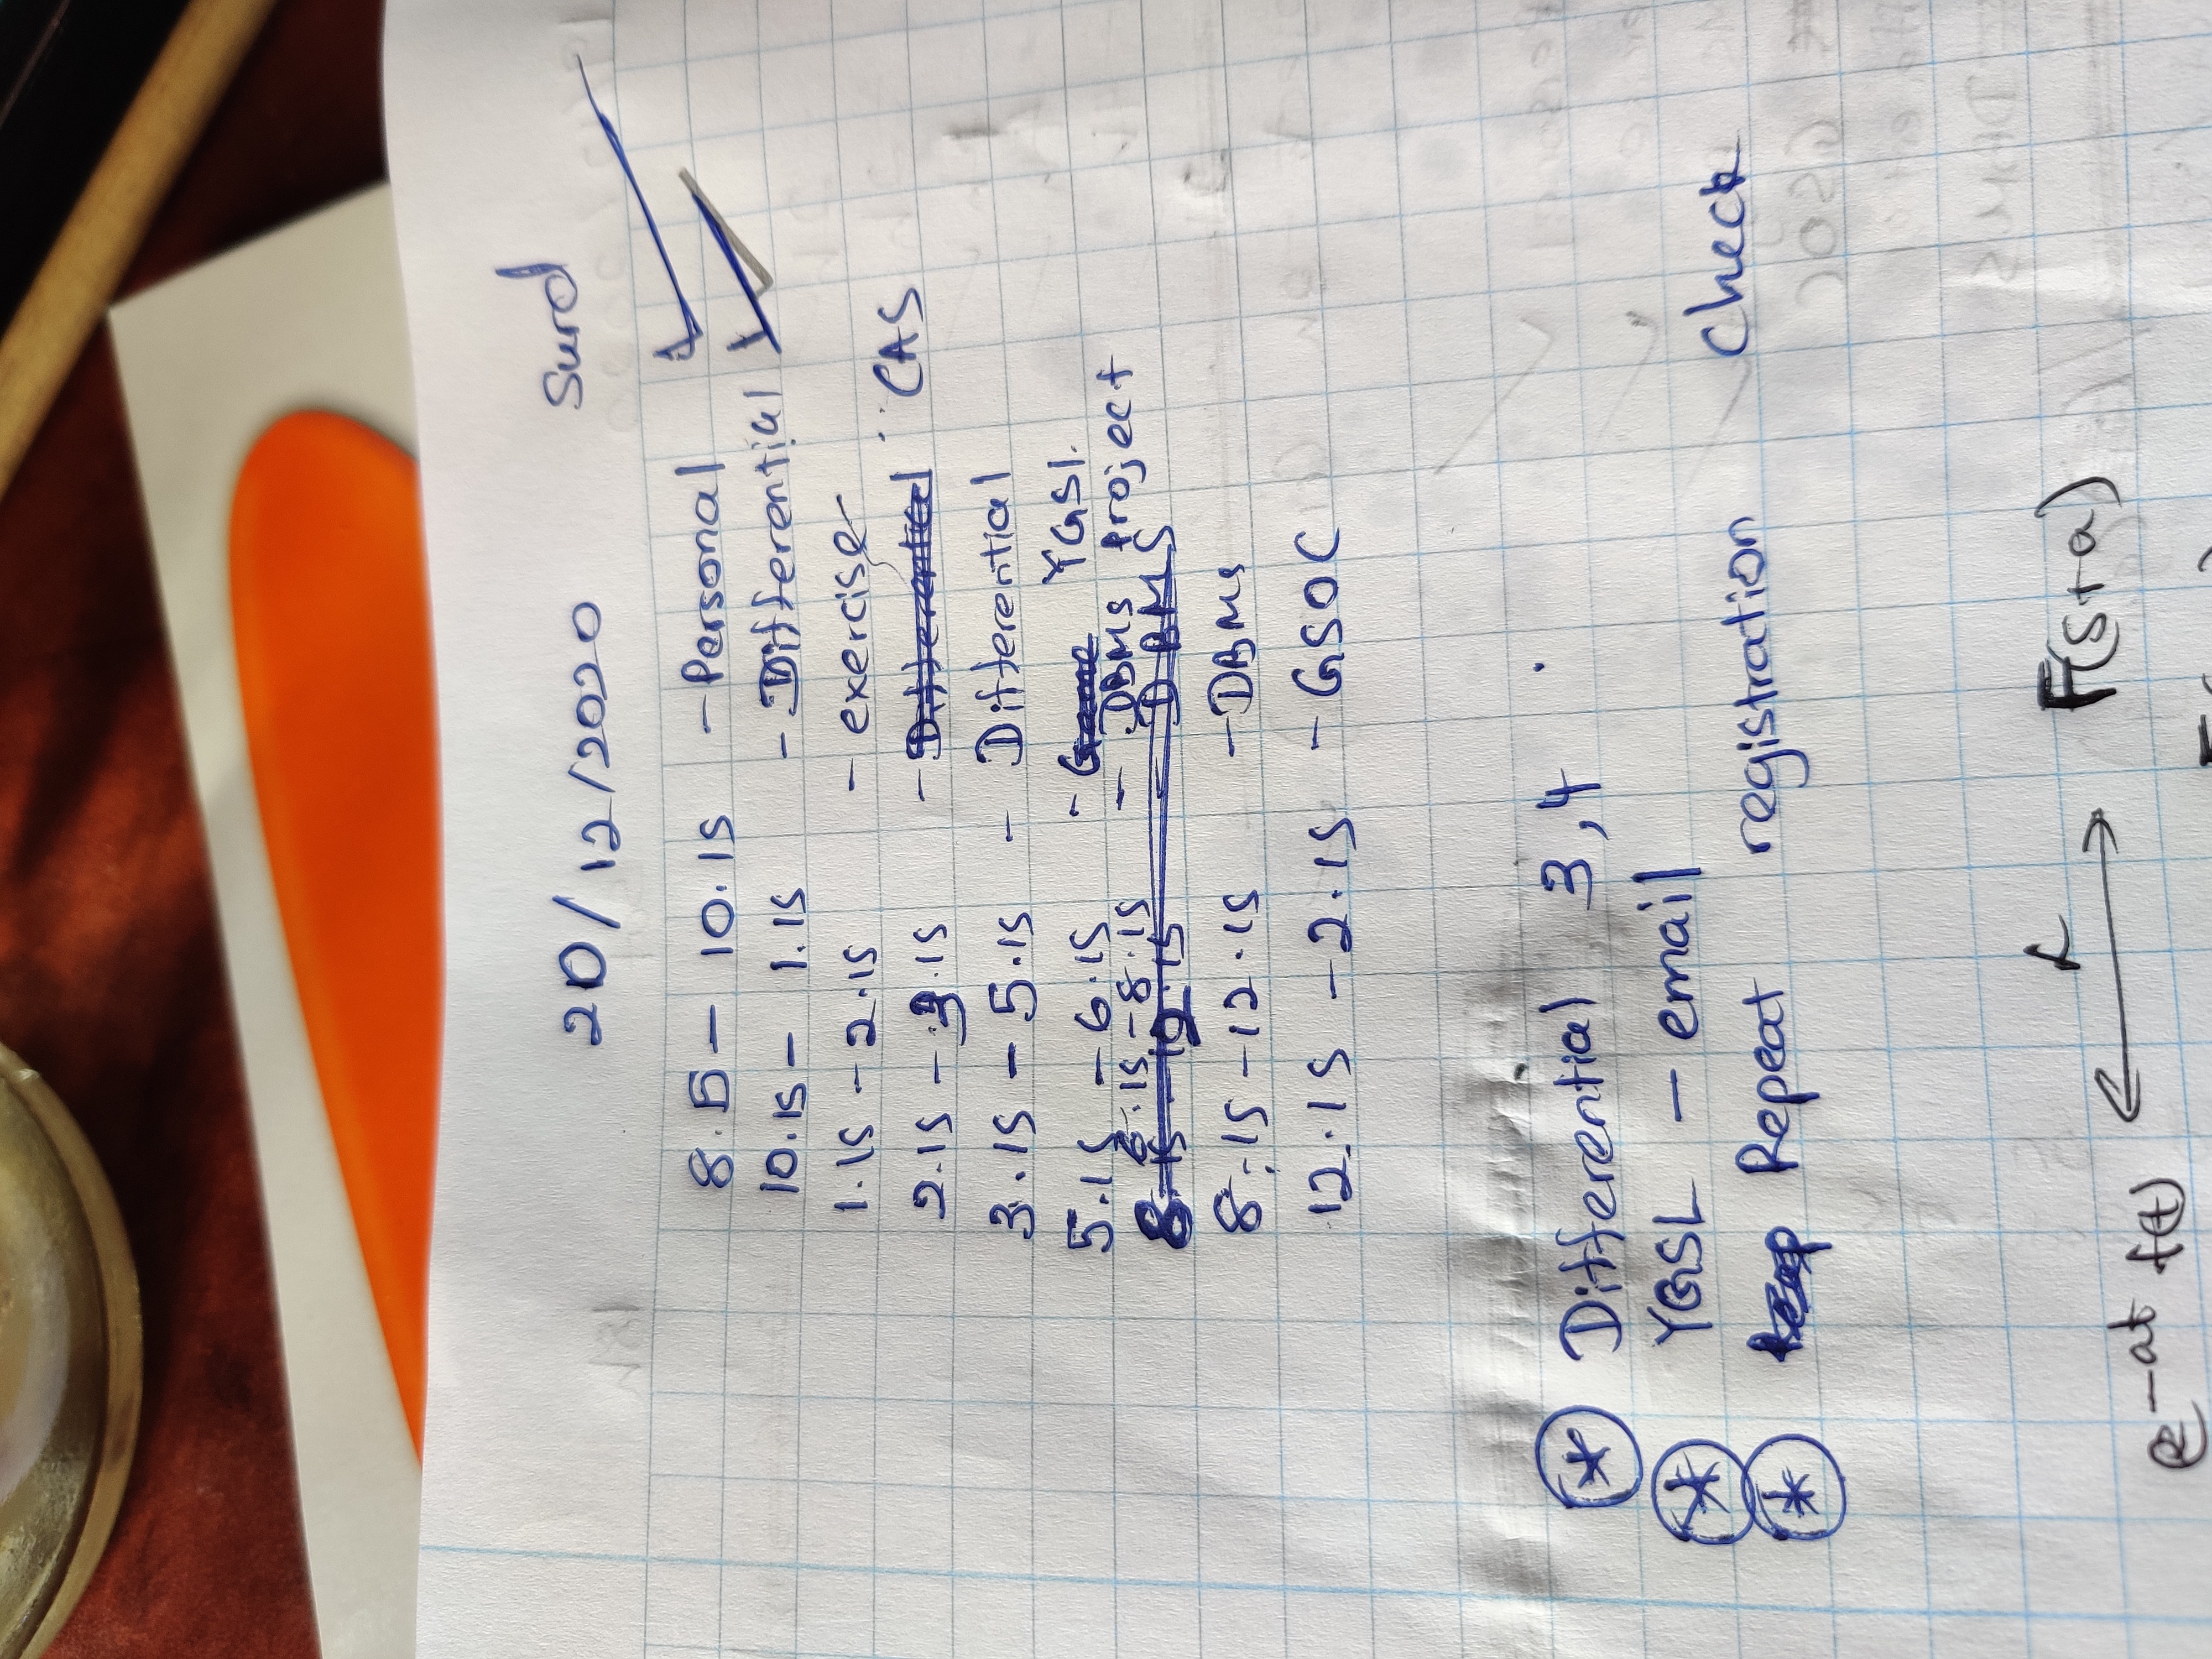 20/12/2020 Surd
8.15 - 10.15 - Personal
10.15 - 1.15 - Differential
1.15 - 2.15 - exercise
2.15 - 3.15 - Differential CAS
3.15 - 5.15 - Differential
5.15 - 6.15 - Game YGSL
6.15 - 8.15 - DBMS Project
8.15 - 12.15 - DBMS
8.15 - 12.15 - DBMS
12.15 - 2.15 - GSOC
* Differential 3,4
* YGSL - email
* Repeat registration check
L
e^-at f(t) ⟷ F(s+a)